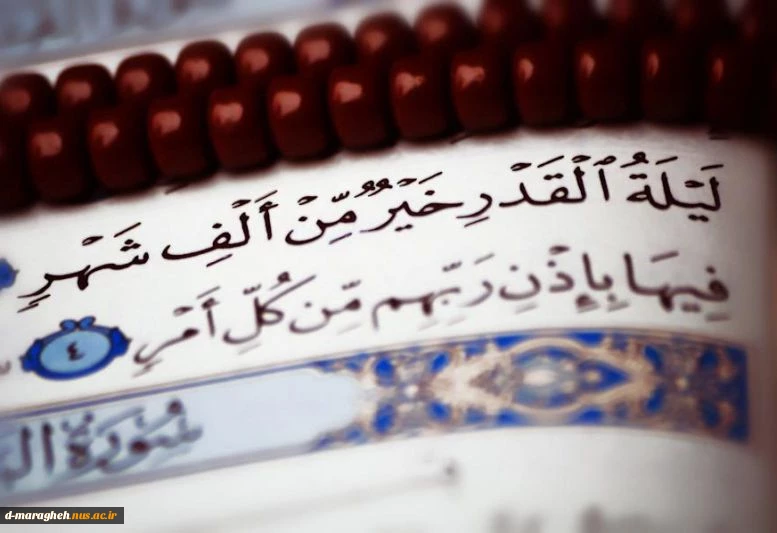 لَيۡلَةُ ٱلۡقَدۡرِ خَيۡرٞ مِّنۡ أَلۡفِ شَهۡرٖ
فِيهَا بِإِذۡنِ رَبِّهِم مِّن كُلِّ أَمۡرٖ ٤
سُورَةُ
d-maragheh.nus.ac.ir